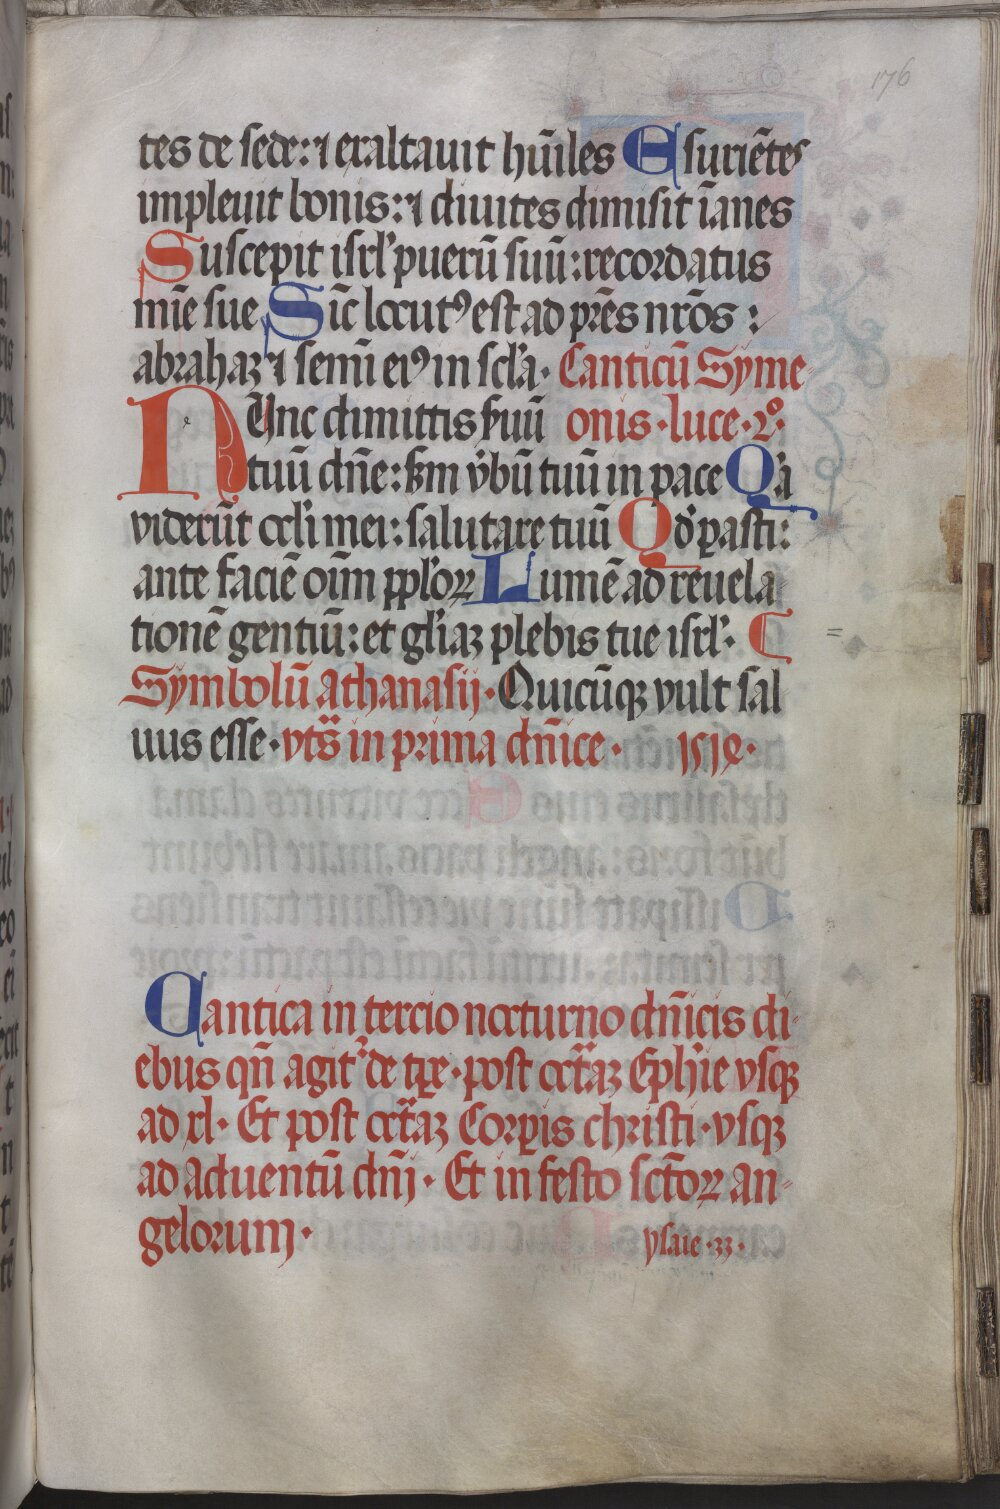 176
tes de sede: ⁊ exaltauit hūiles Esuriētes
impleuit bonis: ⁊ diuites dimisit īanes
Suscepit isrl' puerū suū: recordatus
mīe sue Sič locutꝰ est ad prēs nrōs :
abrahaꝫ ⁊ semī eiꝰ in scl'a· Canticū Syme
NUnc dimittis ẜuū onis · luce · 2°·
tuū dn̄e: ẜm v̓bū tuū in pace Qa̓
viderūt ocl'i mei: salutare tuū Qd̓ ꝑasti:
ante faciē oīm ppl'oꝝ Lumē ad reuela
tionē gentiū: et gl'iaꝫ plebis tue isrl'·
Symbolū athanasij· Quicūqꝫ vult sal
uus esse· vts̄ in prima dn̄ice · 1519·
Cantica in tercio nocturno dn̄icis di-
ebus qn̄ agit᷑ de tꝑe· post octāꝫ Eph'ie vsqꝫ
ad xl· Et post octāꝫ Corꝑis christi· vsqꝫ
ad aduentū dn̄j · Et in festo sctōꝝ an-
gelorum· ysaie · 33 ·